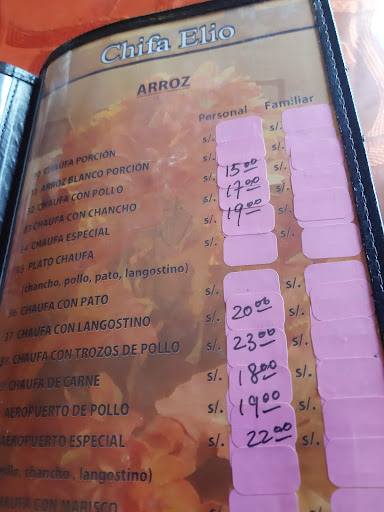 Chifa Elio
ARROZ
Personal Familiar
CHAUFA PORCIÓN s/. s/.
ARROZ BLANCO PORCIÓN s/. s/.
CHAUFA CON POLLO s/. 15.00 s/.
CHAUFA CON CHANCHO s/. 17.00 s/.
CHAUFA ESPECIAL s/. 19.00 s/.
PLATO CHAUFA s/. s/.
(chancho, pollo, pato, langostino)
CHAUFA CON PATO s/. s/.
37 CHAUFA CON LANGOSTINO s/. 20.00 s/.
CHAUFA CON TROZOS DE POLLO s/. 23.00 s/.
CHAUFA DE CARNE s/. 18.00 s/.
AEROPUERTO DE POLLO s/. 19.00 s/.
AEROPUERTO ESPECIAL s/. 22.00 s/.
chancho, langostino)
CON MARISCO s/. s/.